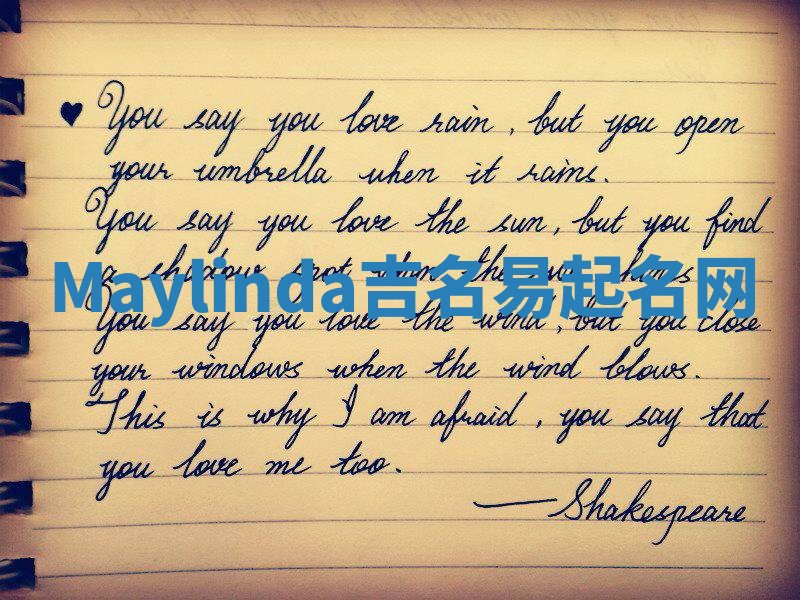 ♥ You say you love rain, but you open
your umbrella when it rains.
You say you love the sun, but you find
a shadow spot when the sun shines
Maylinda吉名易起名网
You say you love the wind, but you close
your windows when the wind blows.
This is why I am afraid, you say that
you love me too.
—Shakespeare